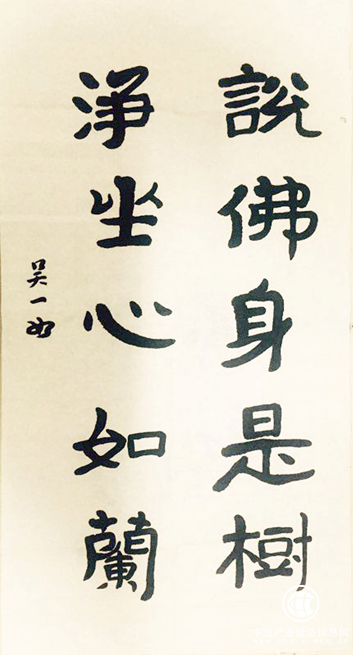 說佛身是樹
淨坐心如蘭
吴一如